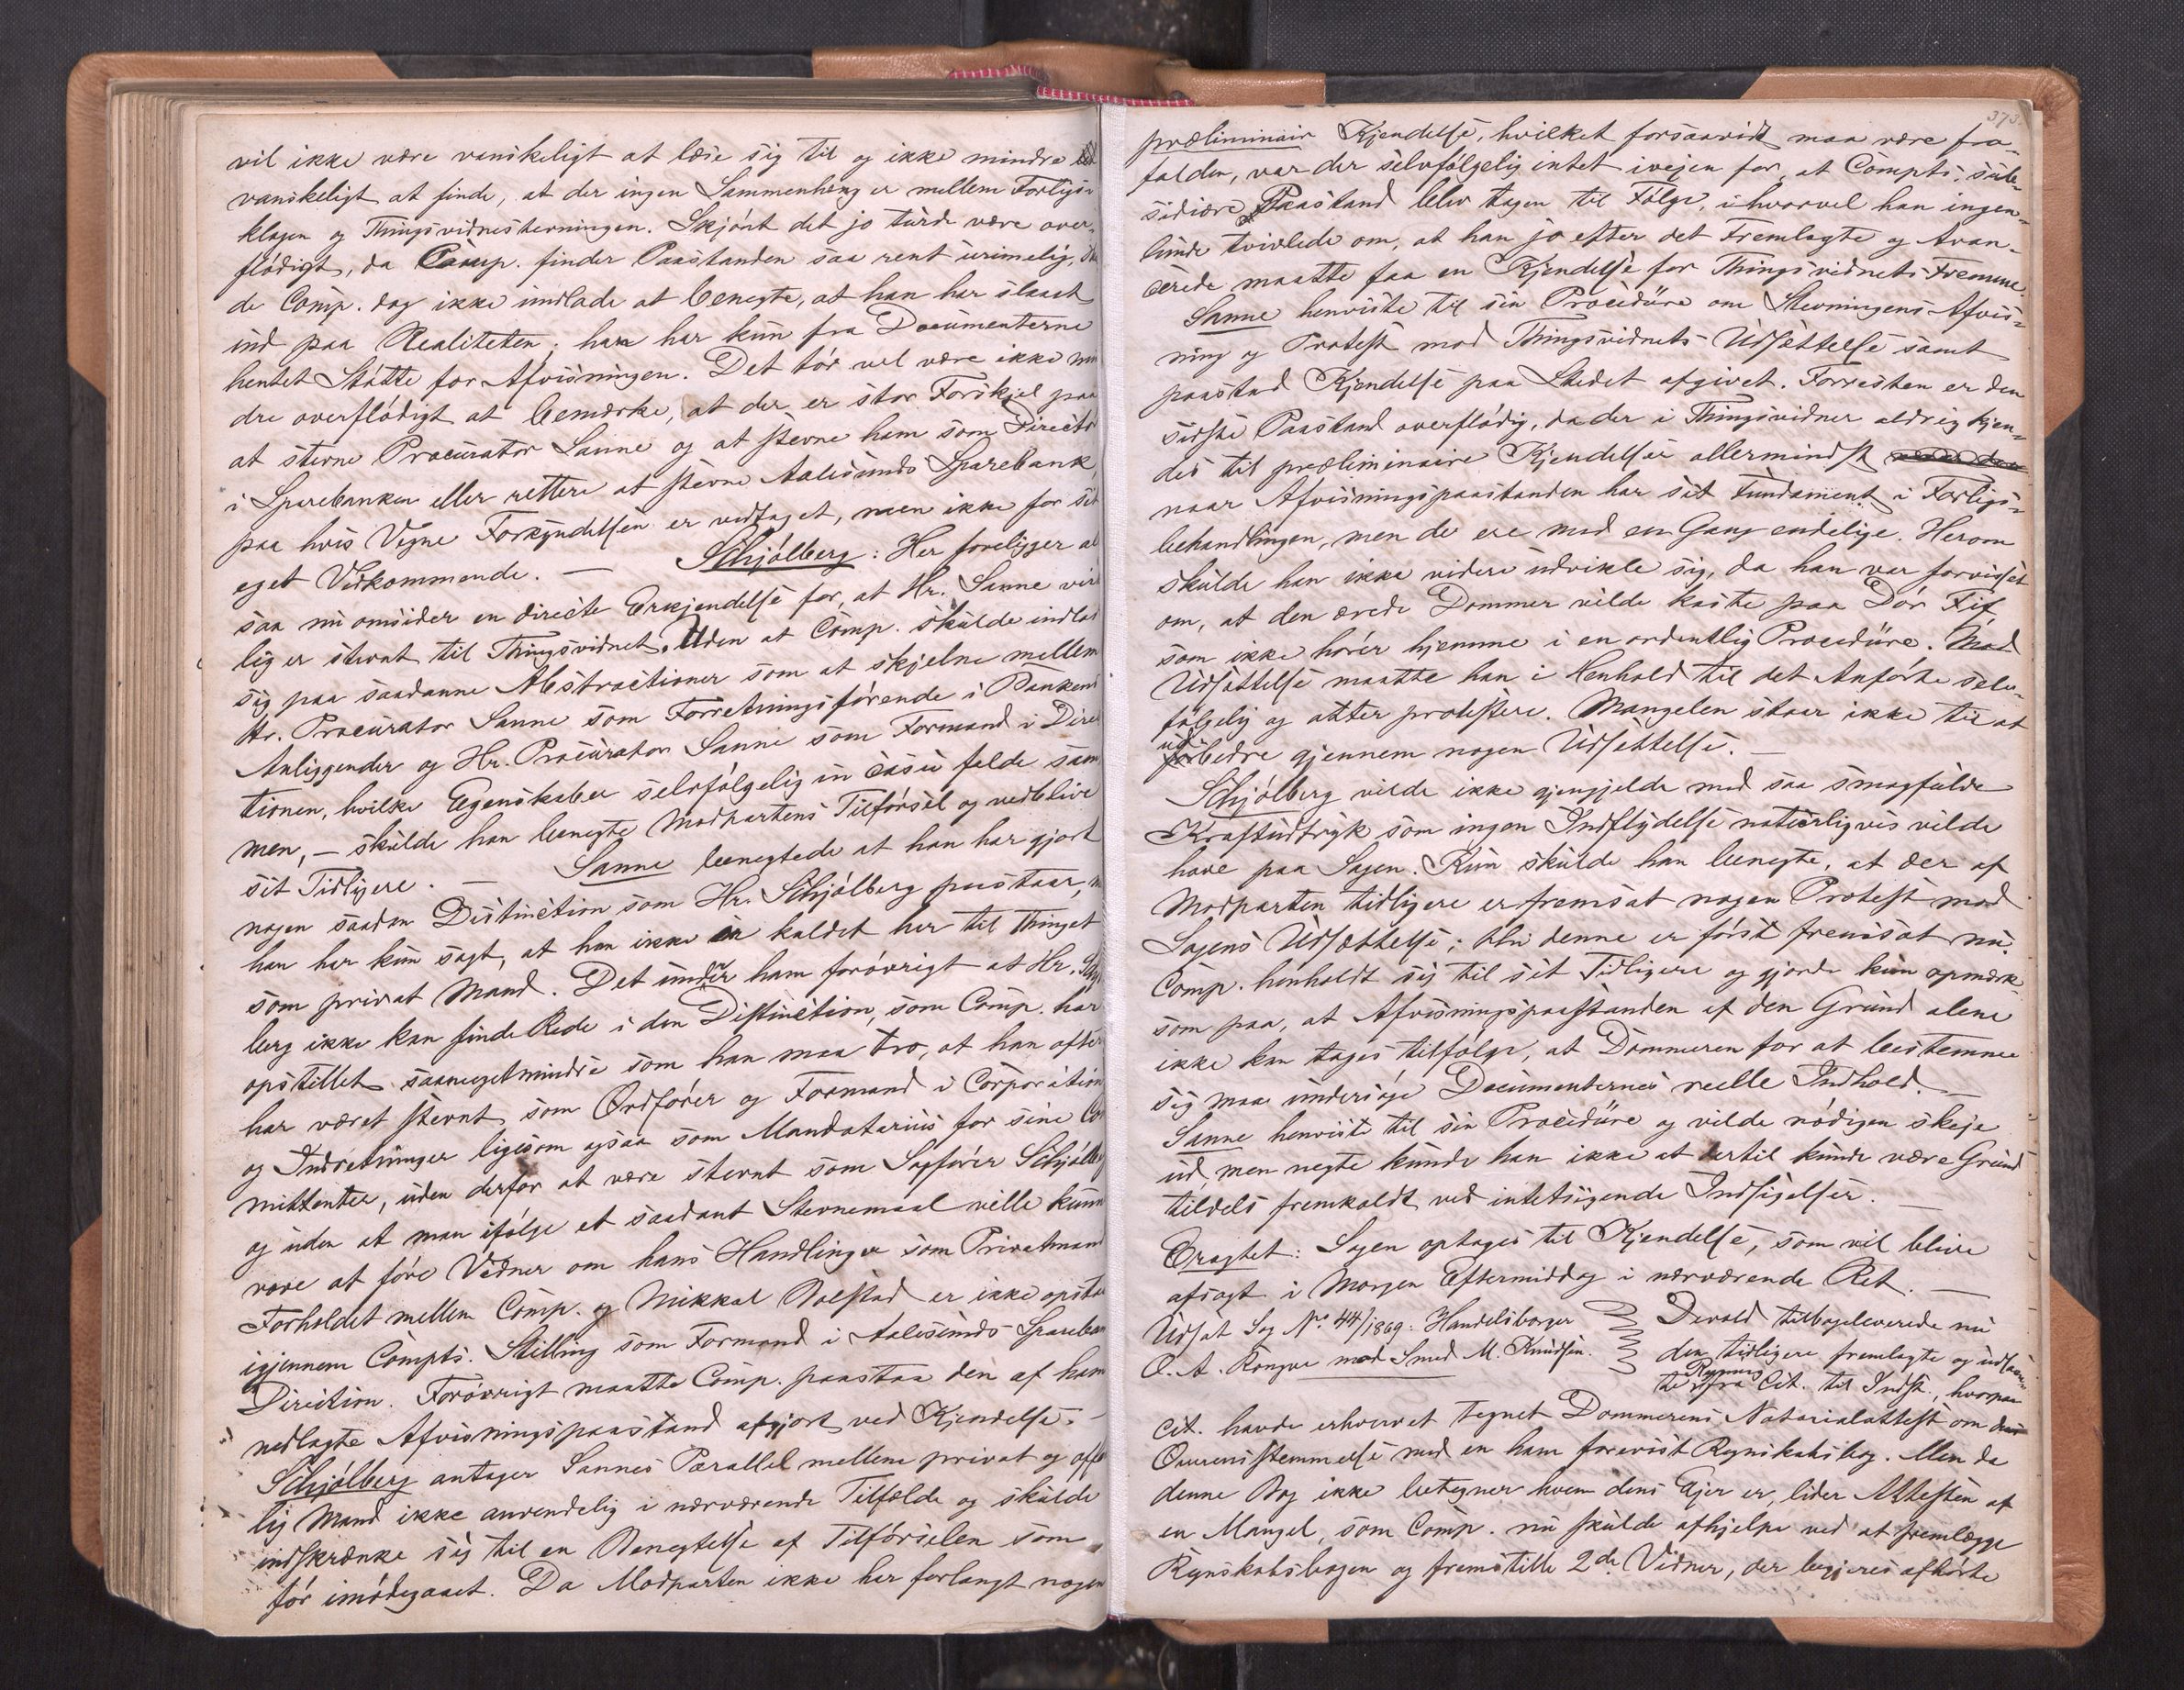 vil ikke være vanskeligt at læse sig til og ikke mindre
vanskeligt at finde, at der ingen Sammenhæng er mellem Forligs-
klagen og Thingsvidnestevningen. Skjønt det jo turde være over-
flødigt, da Comp. finder Paastanden saa rent urimelig,
de Comp. dog ikke undlade at benegte, at han har slaaet
ind paa Realiteten; han har kun fra Documenterne
hentet Støtte for Afvisningen. Det tør vel være ikke min
dre overflødigt at bemærke, at der er stor Forskjel paa
at stevne Procurator Sanne og at stevne ham som Directør
i Sparebanken eller rettere at stevne Aalesunds Sparebank,
paa hvis Vegne Forkyndelsen er vedtaget, men ikke for sit
eget Vedkommende. — Schjølberg: Her foreligger al
saa nu omsider en directe Erkjendelse for, at Hr. Sanne vir
lig er stevnt til Thingsvidnet. Uden at Comp. skulde indlad
sig paa saadanne Abstractioner som at skjelne mellem
Hr. Procurator Sanne som Forretningsførende i Bankens
Anliggender og Hr. Procurator Sanne som Formand i Direc
tionen, hvilke Egenskaber selvfølgelig in casu falde sam
men, — skulde han benegte Modpartens Tilførsel og vedblive
sit Tidligere. — Sanne benegtede at han har gjort
nogen saadan Distinction som Hr. Schjølberg paastaar,
han har kun sagt, at han ikke er kaldet her til Thinget
som privat Mand. Det undrer ham forøvrigt at Hr. Schjøl
berg ikke kan finde Rede i den Distinction, som Comp. har
opstillet saameget mindre som han maa tro, at han ofte
har været stevnt som Ordfører og Formand i Corporation
og Indretninger ligesom ogsaa som Mandatarius for sine Com
mittenter, uden derfor at være stevnt som Sagfører Schjølberg
og uden at man ifølge et saadant Stevnemaal ville kunne
være at føre Vidner om hans Handlinger som Privatmand
Forholdet mellem Comp. og Mikkal Rolstad er ikke opstaa
igjennem Compts. Stilling som Formand i Aalesunds Sparebank
Direction. Forøvrigt maatte Comp. paastaa den af ham
nedlagte Afvisningspaastand afgjort ved Kjendelse. —
Schjølberg antager Sannes Parallel mellem privat og offent
lig Mand ikke anvendelig i nærværende Tilfælde og skulde
indskrænke sig til en Benegtelse af Tilførselen som
før imødegaaet. Da Modparten ikke har forlangt nogen
373.
præliminair Kjendelse, hvilket forsaavidt maa være fra-
falden, var der selvfølgelig intet ivejen for, at Compts. sub-
sidiære Paastand blev tagen til Følge, ihvorvel han ingen-
lunde tvivlede om, at han jo efter det Fremlagte og Avan-
cerede maatte faa en Kjendelse for Thingsvidnets Fremme.
Sanne henviste til sin Procedure om Stevningens Afvis-
ning og Protest mod Thingsvidnets Udsættelse samt
paastod Kjendelse paa Stedet afgivet. Forresten er den
sidste Paastand overflødig, da der i Thingsvidner aldrig kjen-
des til præliminaire Kjendelser allermindst
naar Afvisningspaastanden har sit Fundament i Forligs-
behandlingen, men de ere med en Gang endelige. Herom
skulde han ikke videre udvikle sig, da han var forvisset
om, at den ærede Dommer vilde kaste paa Dør Fif
som ikke hører hjemme i en ordentlig Procedure. Mod
Udsættelse maatte han i Henhold til det Anførte selv-
følgelig og atter protestere. Mangelen staar ikke til at
udbedre gjennem nogen Udsættelse. —
Schjølberg vilde ikke gjengjelde med saa smagfulde
Kraftudtryk som ingen Indflydelse naturligvis vilde
have paa Sagen. Kun skulde han benegte, at der af
Modparten tidligere er fremsat nogen Protest mod
Sagens Udsættelse; thi denne er først fremsat nu.
Comp. henholdt sig til sit Tidligere og gjorde kun opmærk-
som paa, at Afvisningspaastanden af den Grund alene
ikke kan tages tilfølge, at Dommeren for at bestemme
sig maa undersøge Documenternes reelle Indhold. —
Sanne henviste til sin Procedure og vilde nødigen skeje
ud, men negte kunde han ikke at dertil kunde være Grund
tildels fremkaldt ved intetsigende Indsigelser. —
Eragtet: Sagen optages til Kjendelse, som vil blive
afsagt i Morgen Eftermiddag i nærværende Ret. —
Udsat Sag No. 44/1869: Handelsborger
O. A. Rongve mod Smed M. Knudsen.
Devold tilbageleverede nu
den tidligere fremlagte og udlaan-
te Regning fra Cit. til Indst., hvorpaa
Cit. havde erhvervet tegnet Dommerens Notarialattest om
Overensstemmelse med en ham forevist Regnskabsbog. Men da
denne Bog ikke betegner hvem dens Ejer er, lider Attesten af
en Mangel, som Comp. nu skulde afhjelpe ved at fremlægge
Regnskabsbogen og fremstille 2de Vidner, der begjeres afhørte